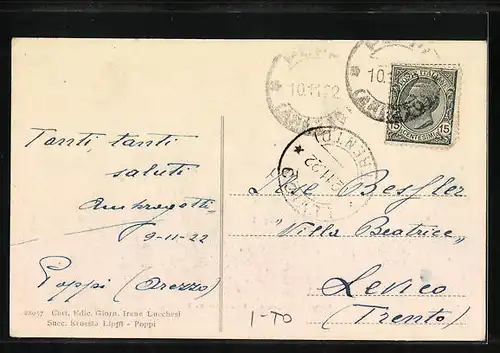 Tanti, tanti
saluti
Ambrogotti
9-11-22
Poppi (Arezzo)
22057 Cart. Edic. Giorn. Irene Lucchesi
Succ. Ernesto Lippi - Poppi
10.11.22
10.1
POSTE ITALIANE
15 CENTESIMI 15
LEVICO
(TRENTO)
11.22
Bessler
"Villa Beatrice"
Levico
(Trento)
I-TO